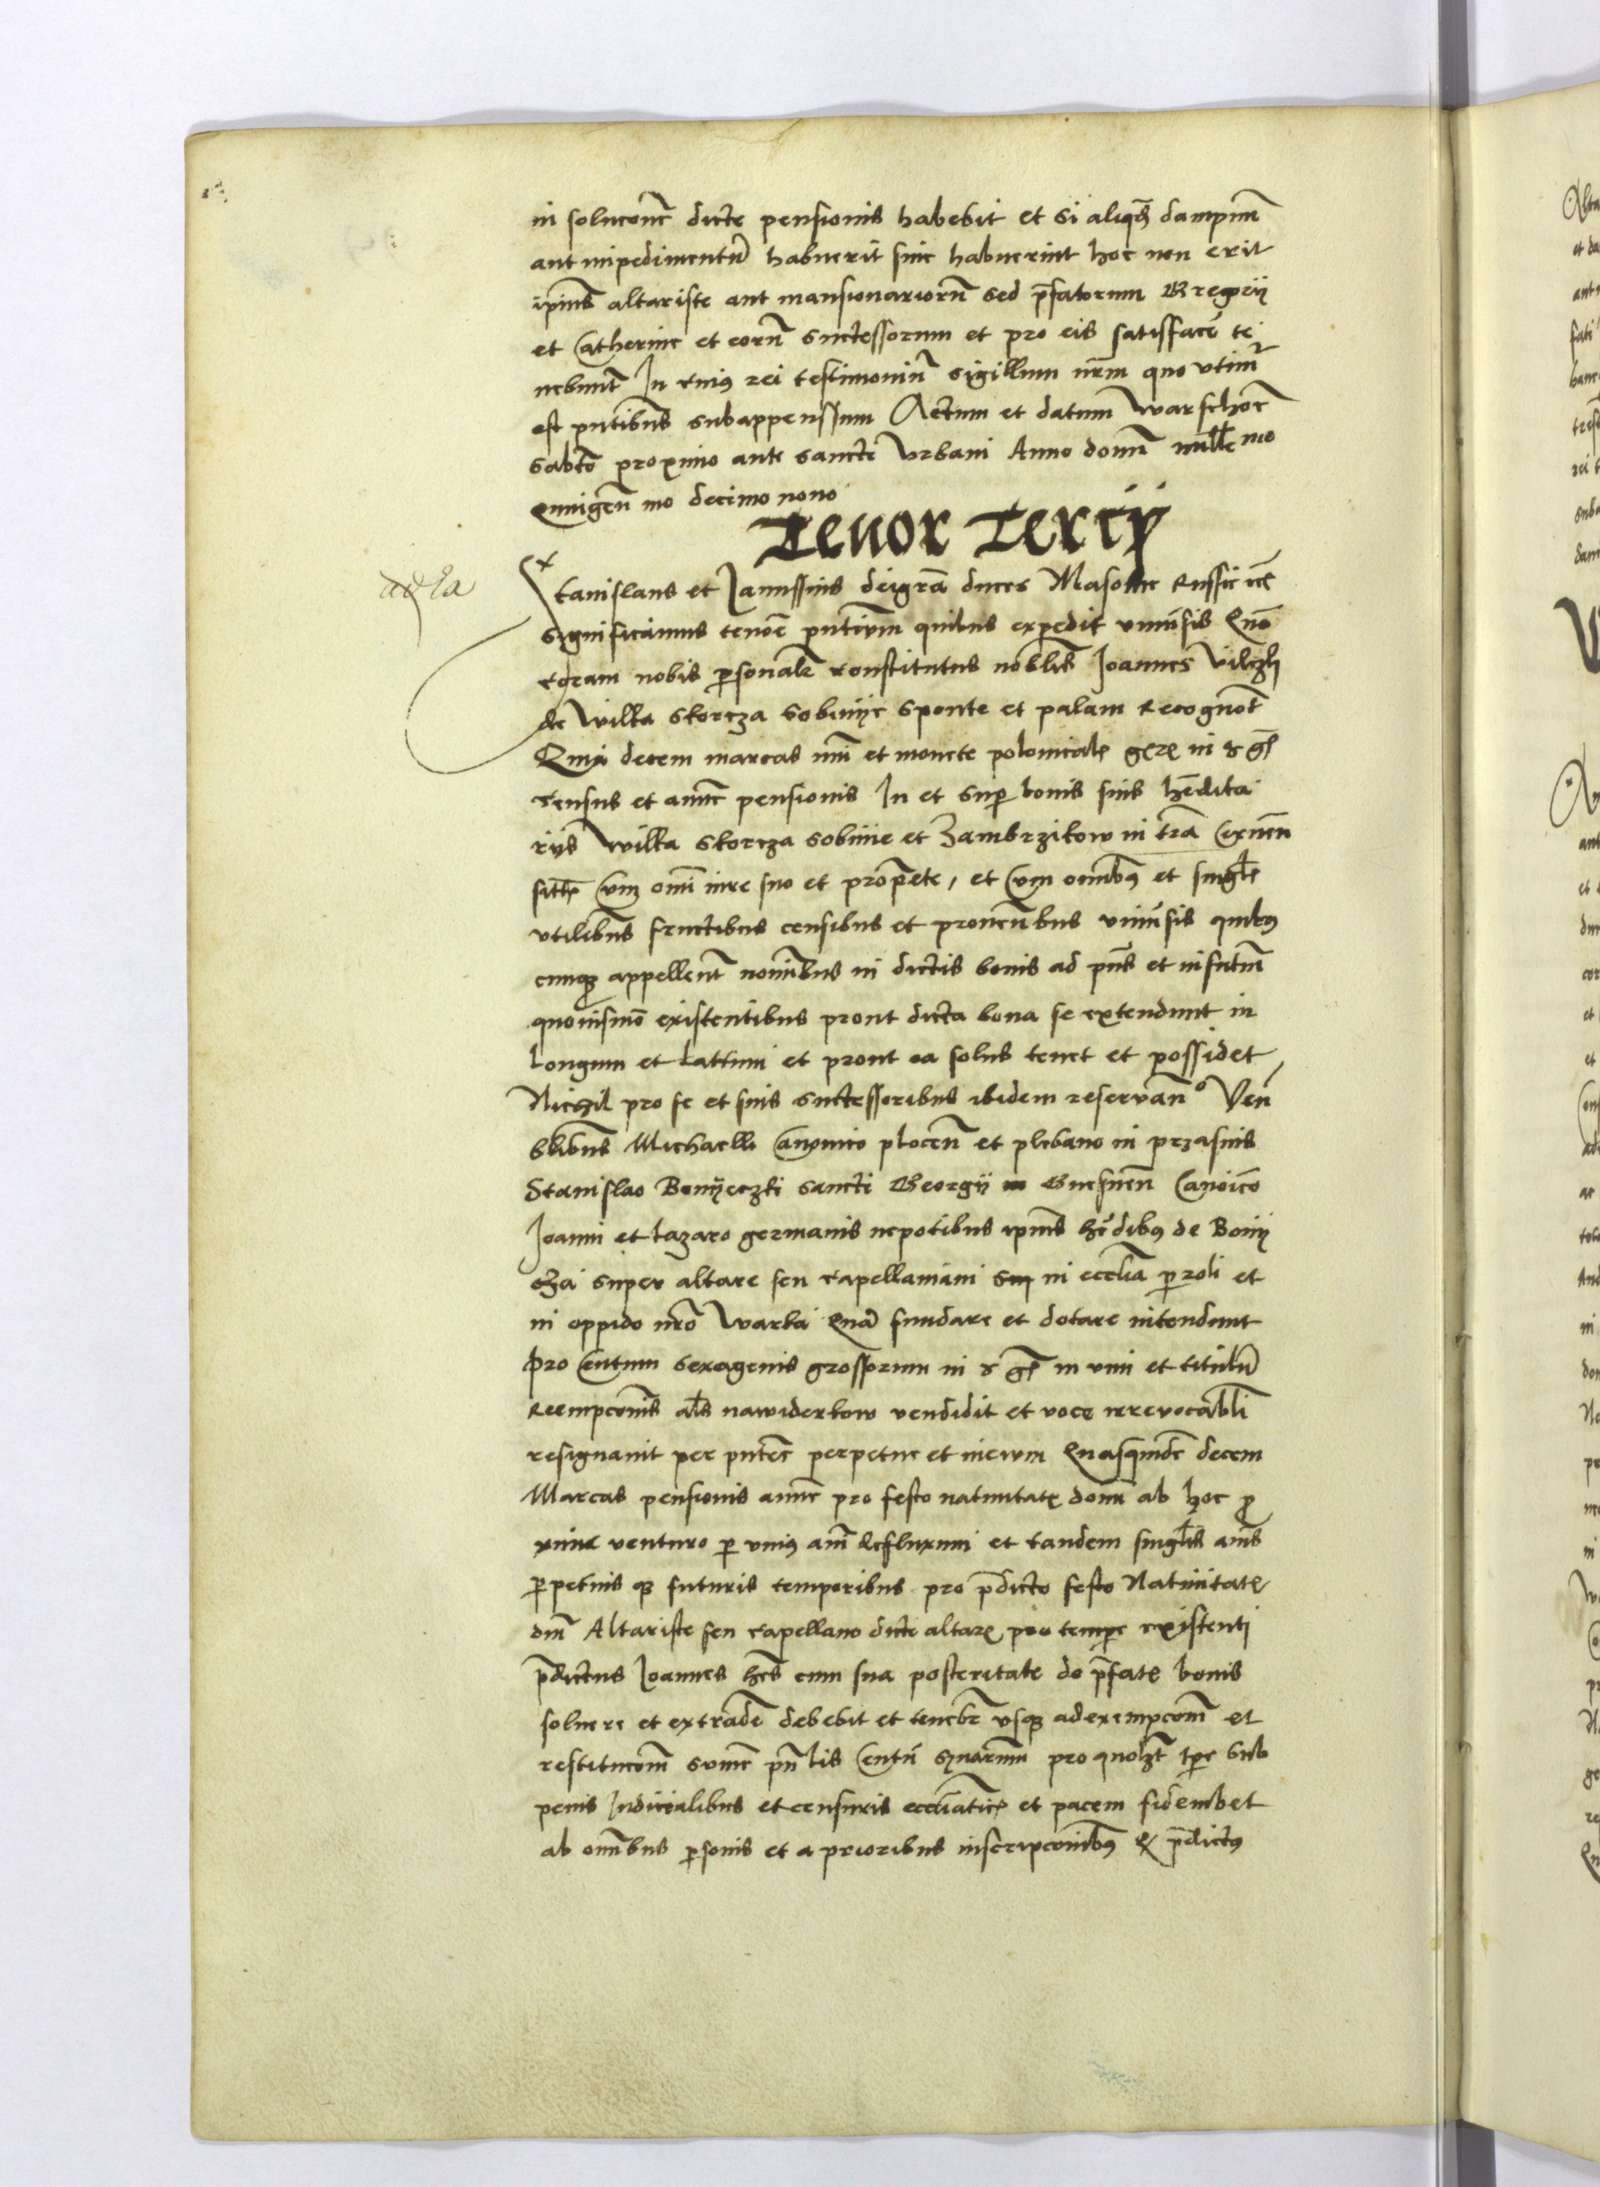 in soluconē dicte pensionis habebit et si aliqd̄ dampnū
aut impedimentū habuerit siue habuerint hoc non erit
ipīus altariste aut mansionariorū sed p̄fatorum Gregorij
et Catherine et eorū successorum et pro eis satisfacē te
nebunt̄ In cuius rei testimoniū sigillum nr̄m quo vtimr̄
est pn̄tibus subappensum Actum et datum Warschouē
sabto proximo ante sancti Vrbani Anno domī mille mo
Quingen mo decimo nono
Tenor Tercij
Stanislaus et Janussius dei gr̄a duces Masouie Russie etc̄
Significamus tenore pn̄tium quibus expedit vniūsis Quō
coram nobis p̄sonale constitutus nobilis Joannes Vilczki
de Wilka Skorcza Sobinije sponte et palam recognoūt
Quia decem marcas nūi et monete polonicalę
census et annue pensionis In et super bonis suis hēdita
rijs Wilka Skorcza Sobinie et Zambrzikow in tr̄a Cernēn
sitis Cum omī iure suo et prop̄ete, et Cum omibus et singlis
vtilibus fructibus censibus et prouentibus vniūsis quibus
cunq̄ appellent̄ nominibus in dictis bonis ad pn̄s et in futuū
quouismō existentibus prout dicta bona se extendunt in
longum et lattum et prout ea solus tenet et possidet
Nichil pro se et suis successoribus ibidem reseruan° Ven
blibus Michaeli Canonico plocen̄ et plebano in przasnis
Stanislao Bonyeczki sancti Georgii Gnesnen̄ Canoico
Joanni et Lazaro germanis nepotibus ipīus hēdibus de Bonij
cza super altare seu capellaniam in ecclīa p̄roli et
in oppido nr̄o Warka Quā fundare et dotare intendunt
Pro Centum sexagenis grossorum in vim et titulū
Reempconis al̄s nawiderkow vendidit et voce irreuocabli
resignauit per pn̄tes perpetue et in euum Quasquidē decem
Marcas pensionis annue pro festo natiuitatę domī ab hoc p̄
xime venturo p̄ vnius anī defluxum et tandem singlis anīs
p̄petuis q̄ futuris temporibus pro p̄dicto festo Natiuitatę
dnī Altariste seu capellano dicti altarę pro tempore existenti
p̄dictus Joannes hēs cum sua posteritate de p̄fatę bonis
soluere et extradē debebit et tenebr̄ vsq̄ ad exempconē et
restituconē sume pn̄lis Centū pro quolz̄ tpe sub
penis Judicialibus et censuris ecclīaticę et pacem fidembet
ab omībus p̄sonis et a prioribus inscripconibus p̄dictus